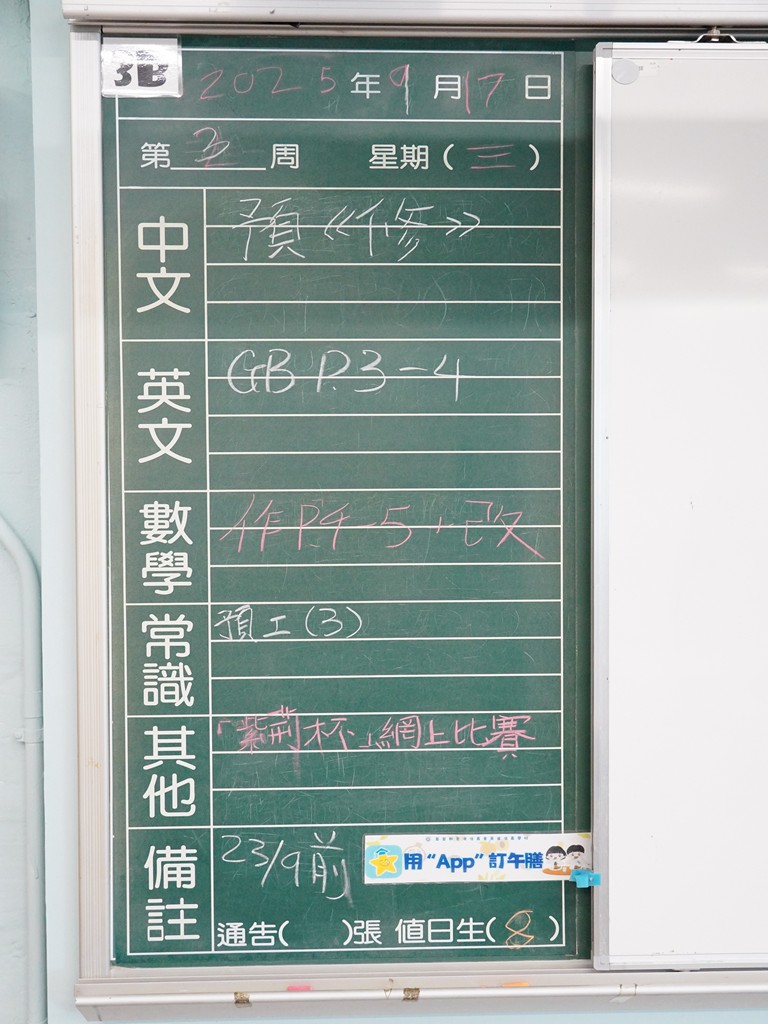 3B
2025年9月17日
第3周 星期(三)
中文
預《修》
英文
GB P.3-4
數學
作P.4-5+改
常識
預工(3)
其他
「紫荊杯」網上比賽
備註
23/9前
用“App”訂午膳
通告( )張 值日生(8)